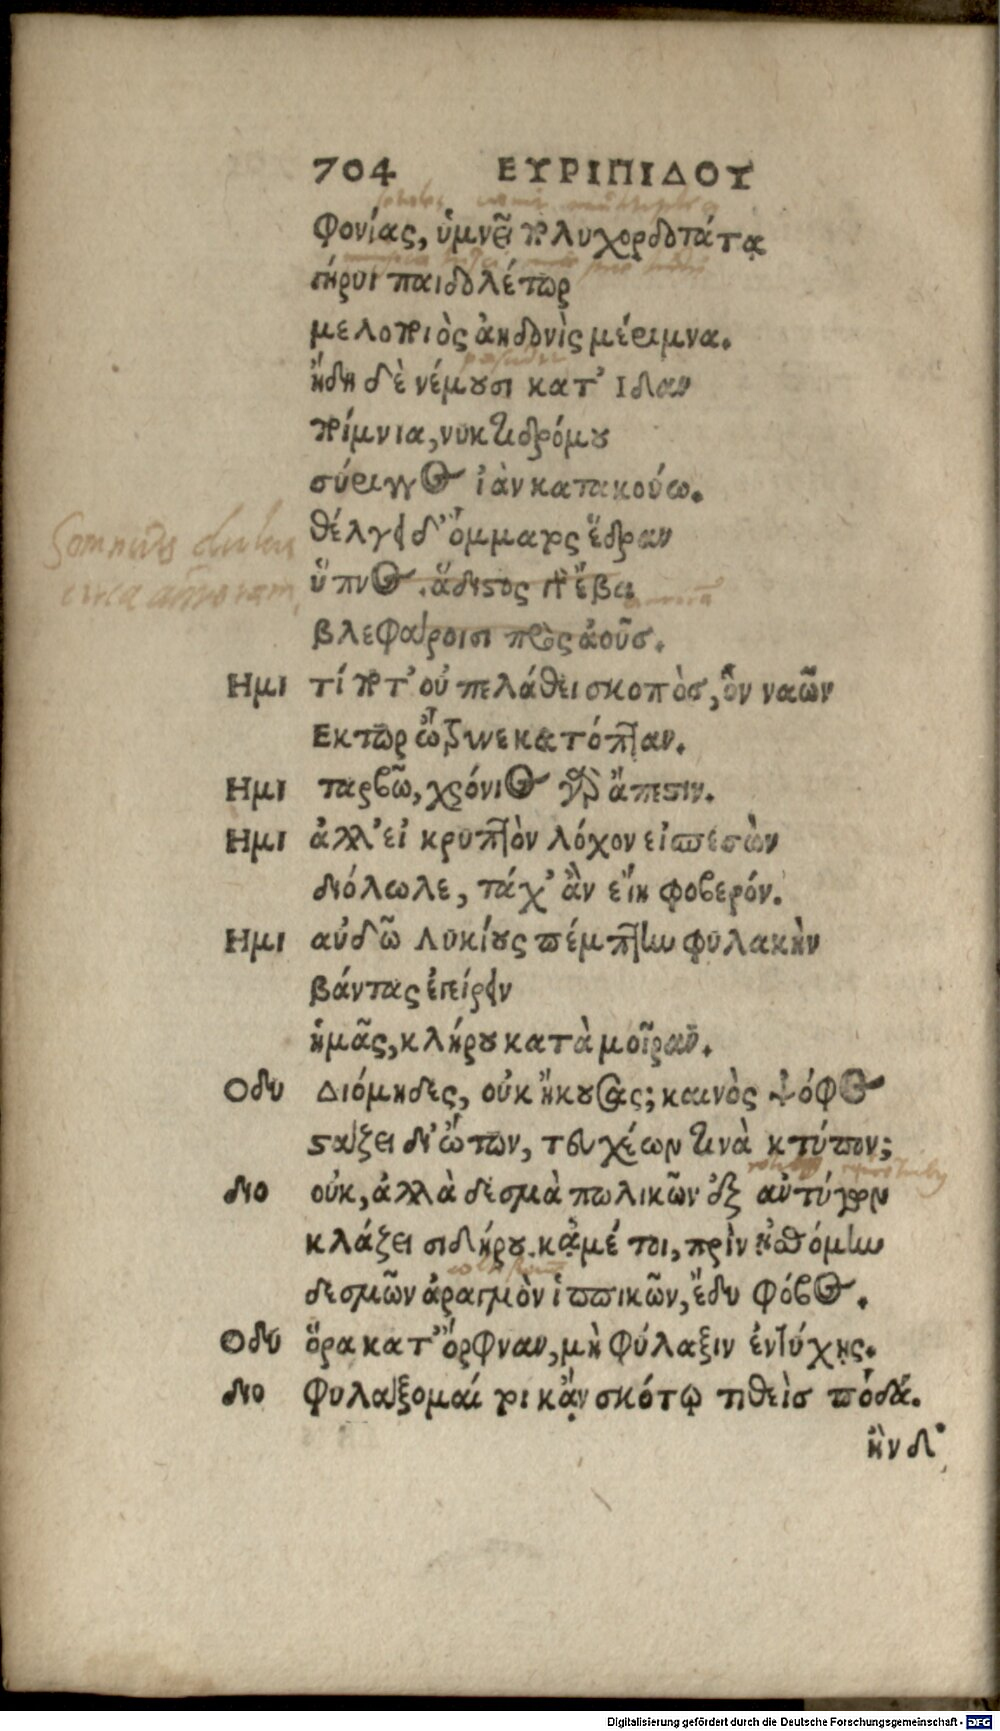 704 ΕΥΡΙΠΙΔΟΥ
φονίας, ὑμνεῖ πολυχορδοτάτᾳ
γήρυι παιδολέτωρ
μελοποιὸς ἀηδονὶς μέριμνα.
ἤδη δὲ νέμουσι κατ' Ιδαν
ποίμνια, νυκτιδρόμου
σύριγγος ἰὰν κατακούω.
θέλγει δ' ὄμματος ἕδραν
ὕπνος. ἅδιστος γὰρ ἔβα
βλεφάροισι πρὸς ἀοῦσ.
Ημι τί ποτ' οὐ πελάθει σκοπὸσ, ὃν ναῶν
Εκτωρ ὤτρυνε κατόπταν.
Ημι ταρβῶ, χρόνιος γὰρ ἄπεστιν.
Ημι ἀλλ' εἰ κρυπτὸν λόχον εἰσπεσὼν
διόλωλε, τάχ' ἂν εἴη φοβερόν.
Ημι αὐδῶ Λυκίους πέμπτην φυλακὴν
βάντας ἐγείρειν
ἡμᾶς, κλήρου κατὰ μοῖραν.
Οδυ Διόμηδες, οὐκ ἤκουσας; καινὸς ψόφος
στάζει δι' ὤτων, τευχέων τινὰ κτύπον;
διο οὐκ, ἀλλὰ δεσμὰ πωλικῶν ἐξ αὐτύγων
κλάζει σιδήρου. κᾀμέ τοι, πρὶν ᾐσθόμην
δεσμῶν ἀραγμὸν ἱππικῶν, ἔδυ φόβος.
Οδυ ὅρα κατ' ὄρφναν, μὴ φύλαξιν ἐντύχῃς.
διο φυλάξομαί τοι κᾂν σκότῳ τιθεὶσ πόδα.
ἢν δ'
Somnus dulcis
circa auroram
Digitalisierung gefördert durch die Deutsche Forschungsgemeinschaft - DFG